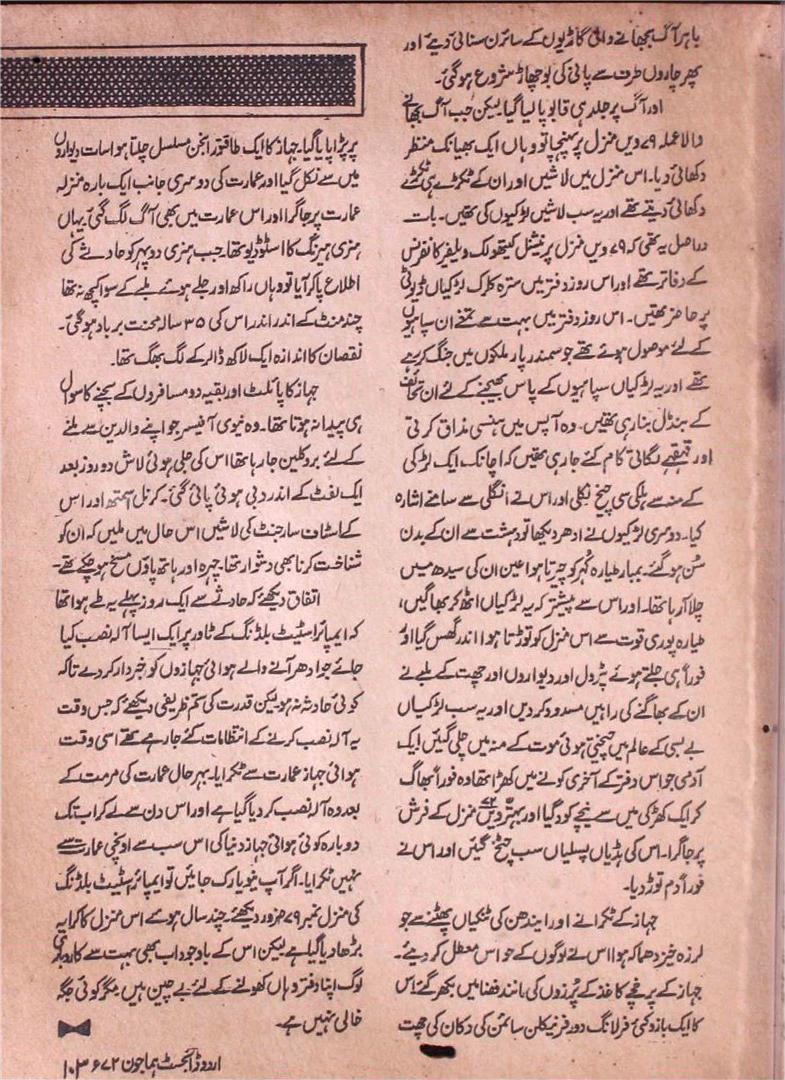 باہر آگ بجھانے والی گاڑیوں کے سائرن سنائی دیئے اور
پھر چاروں طرف سے پانی کی بوچھاڑ شروع ہو گئی۔
اور آگ پر جلد ہی قابو پا لیا گیا۔ لیکن جب آگ بجھانے
والا عملہ ۷۹ ویں منزل پر پہنچا تو وہاں ایک بھیانک منظر
دکھائی دیا۔ اس منزل میں لاشیں اور ان کے ٹکڑے ہی ٹکڑے
دکھائی دیتے تھے اور یہ سب لاشیں لڑکیوں کی تھیں۔ بات
دراصل یہ تھی کہ ۷۹ ویں منزل پر نیشنل کیتھولک ویلفیر کانفرنس
کے دفاتر تھے اور اس روز دفتر میں سترہ کلرک لڑکیاں ڈیوٹی
پر حاضر تھیں۔ اس روز دفتر میں بہت سے تحفے ان سپاہیوں
کے لئے موصول ہوئے تھے جو سمندر پار ملکوں میں جنگ کر رہے
تھے اور یہ لڑکیاں سپاہیوں کے پاس بھیجنے کے لئے ان تحائف
کے بنڈل بنا رہی تھیں۔ وہ آپس میں ہنسی مذاق کرتی
اور قہقہے لگاتی کام کئے جا رہی تھیں کہ اچانک ایک لڑکی
کے منہ سے ہلکی سی چیخ نکلی اور اس نے انگلی سے سامنے اشارہ
کیا۔ دوسری لڑکیوں نے ادھر دیکھا تو دہشت سے ان کے بدن
سُن ہو گئے۔ بمبار طیارہ کُہر کو چیرتا ہوا عین ان کی سیدھ میں
چلا آ رہا تھا۔ اور اس سے پیشتر کہ یہ لڑکیاں اٹھ کر بھاگیں،
طیارہ پوری قوت سے اس منزل کو توڑتا ہوا اندر گھس گیا اور
فوراً ہی جلتے ہوئے پٹرول اور دیواروں اور چھت کے ملبے نے
ان کے بھاگنے کی راہیں مسدود کر دیں اور یہ سب لڑکیاں
بے بسی کے عالم میں چیختی ہوئی موت کے منہ میں چلی گئیں ایک
آدمی جو اس دفتر کے آخری کونے میں کھڑا تھا وہ فوراً بھاگ
کر ایک کھڑکی میں سے نیچے کود گیا اور بہترویں ۷۲ منزل کے فرش
پر جا گرا۔ اس کی ہڈیاں پسلیاں سب چیخ گئیں اور اس نے
فوراً دم توڑ دیا۔
جہاز کے ٹکرانے اور ایندھن کی ٹنکیاں پھٹنے سے جو
لرزہ خیز دھماکہ ہوا اس نے لوگوں کے حواس معطل کر دیئے۔
جہاز کے پرخچے کاغذ کے پُرزوں کی مانند فضا میں بکھر گئے اس
کا ایک بازو کئی فرلانگ دور فرنیکلن سائمن کی دکان کی چھت
پر پڑا پایا گیا۔ جہاز کا ایک طاقتور انجن مسلسل چلتا ہوا سات دیواروں
میں سے نکل گیا اور عمارت کی دوسری جانب ایک بارہ منزلہ
عمارت پر جا گرا اور اس عمارت میں بھی آگ لگ گئی۔ یہاں
ہنری ہیرنگ کا اسٹوڈیو تھا۔ جب ہنری دوپہر کو حادثے کی
اطلاع پا کر آیا تو وہاں راکھ اور جلے ہوئے ملبے کے سوا کچھ نہ تھا
چند منٹ کے اندر اندر اس کی ۳۵ سالہ محنت برباد ہو گئی۔
نقصان کا اندازہ ایک لاکھ ڈالر کے لگ بھگ تھا۔
جہاز کا پائلٹ اور بقیہ دو مسافروں کے بچنے کا سوال
ہی پیدا نہ ہوتا تھا۔ وہ نیوی آفیسر جو اپنے والدین سے ملنے
کے لئے بروکلین جا رہا تھا اس کی جلی ہوئی لاش دو روز بعد
ایک لفٹ کے اندر دبی ہوئی پائی گئی۔ کرنل اسمتھ اور اس
کے اسٹاف سارجنٹ کی لاشیں اس حال میں ملیں کہ ان کو
شناخت کرنا بھی دشوار تھا۔ چہرہ اور ہاتھ پاؤں مسخ ہو چکے تھے۔
اتفاق دیکھئے کہ حادثے سے ایک روز پہلے یہ طے ہوا تھا
کہ ایمپائر اسٹیٹ بلڈنگ کے ٹاور پر ایک ایسا آلہ نصب کیا
جائے جو ادھر آنے والے ہوائی جہازوں کو خبردار کر دے تاکہ
کوئی حادثہ نہ ہو لیکن قدرت کی ستم ظریفی دیکھئے کہ جس وقت
یہ آلہ نصب کرنے کے انتظامات کئے جا رہے تھے اسی وقت
ہوائی جہاز عمارت سے ٹکرایا۔ بہرحال عمارت کی مرمت کے
بعد وہ آلہ نصب کر دیا گیا ہے اور اس دن سے لے کر اب تک
دوبارہ کوئی ہوائی جہاز دنیا کی اس سب سے اونچی عمارت سے
نہیں ٹکرایا۔ اگر آپ نیویارک جائیں تو ایمپائر اسٹیٹ بلڈنگ
کی منزل نمبر ۷۹ ضرور دیکھئے۔ چند سال ہوئے اس منزل کا کرایہ
بڑھا دیا گیا ہے لیکن اس کے باوجود اب بھی بہت سے کاروباری
لوگ اپنا دفتر وہاں کھولنے کے لئے بے چین ہیں مگر کوئی جگہ
خالی نہیں ہے۔
اردو ڈائجسٹ ہما جون ۶۷۲ ۱۰۳